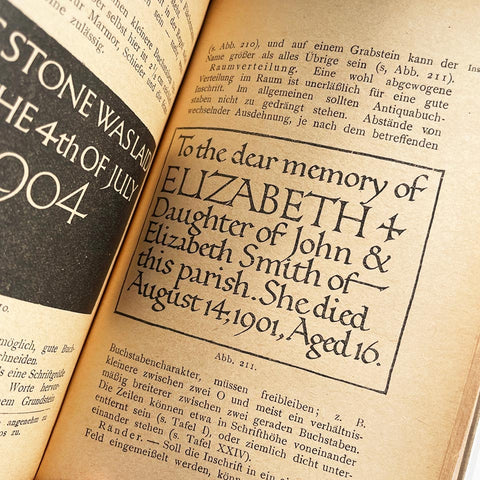 kleinere Buchstaben
selbst hier ist
für Marmor, Schiefer und die
zulässig.
STONE WAS LAID
THE 4th OF JULY
1904
möglich, gute
schneiden.
als eine Schriftgröße
Worte hervor-
dem Grundstein
angenehm zu
zu.
(s. Abb. 210), und auf einem Grabstein kann der
Name größer als alles Übrige sein (s, Abb. 211).
Raumverteilung. Eine wohl abgewogene
Verteilung im Raum ist unerläßlich für eine gute
Inschrift. Im allgemeinen sollten Antiquabuch-
staben nicht zu gedrängt stehen. Abstände von
wechselnder Ausdehnung, je nach dem betreffenden
To the dear memory of
ELIZABETH
Daughter of John &
Elizabeth Smith of
this parish. She died
August 14, 1901, Aged 16.
Abb. 211.
Buchstabencharakter, müssen freibleiben; z. B.
kleinere zwischen zwei O und meist ein verhältnis-
mäßig breiterer zwischen zwei geraden Buchstaben.
Die Zeilen können etwa in Schrifthöhe voneinander
entfernt sein (s. Tafel I), oder ziemlich dicht unter-
einander stehen (s. Tafel XXIV).
Ränder. — Soll die Inschrift in ein
Feld eingemeißelt werden,